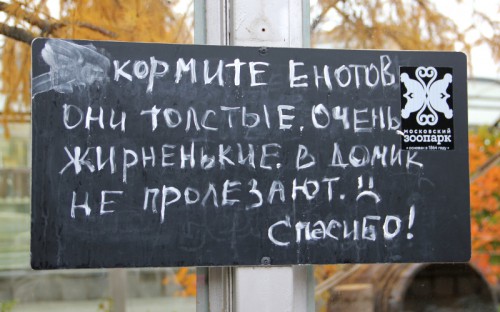 КОРМИТЕ ЕНОТОВ
ОНИ ТОЛСТЫЕ, ОЧЕНЬ
ЖИРНЕНЬКИЕ. В ДОМИК
НЕ ПРОЛЕЗАЮТ. :(
СПАСИБО!
МОСКОВСКИЙ
ЗООПАРК
• основан в 1864 году •